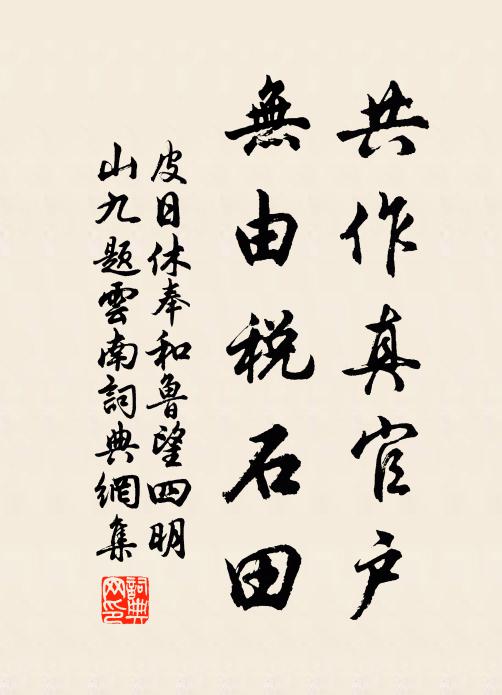 共作真官户
無由税石田
皮日休奉和鲁望四明
山九题雲南詞典網集
詞典網印